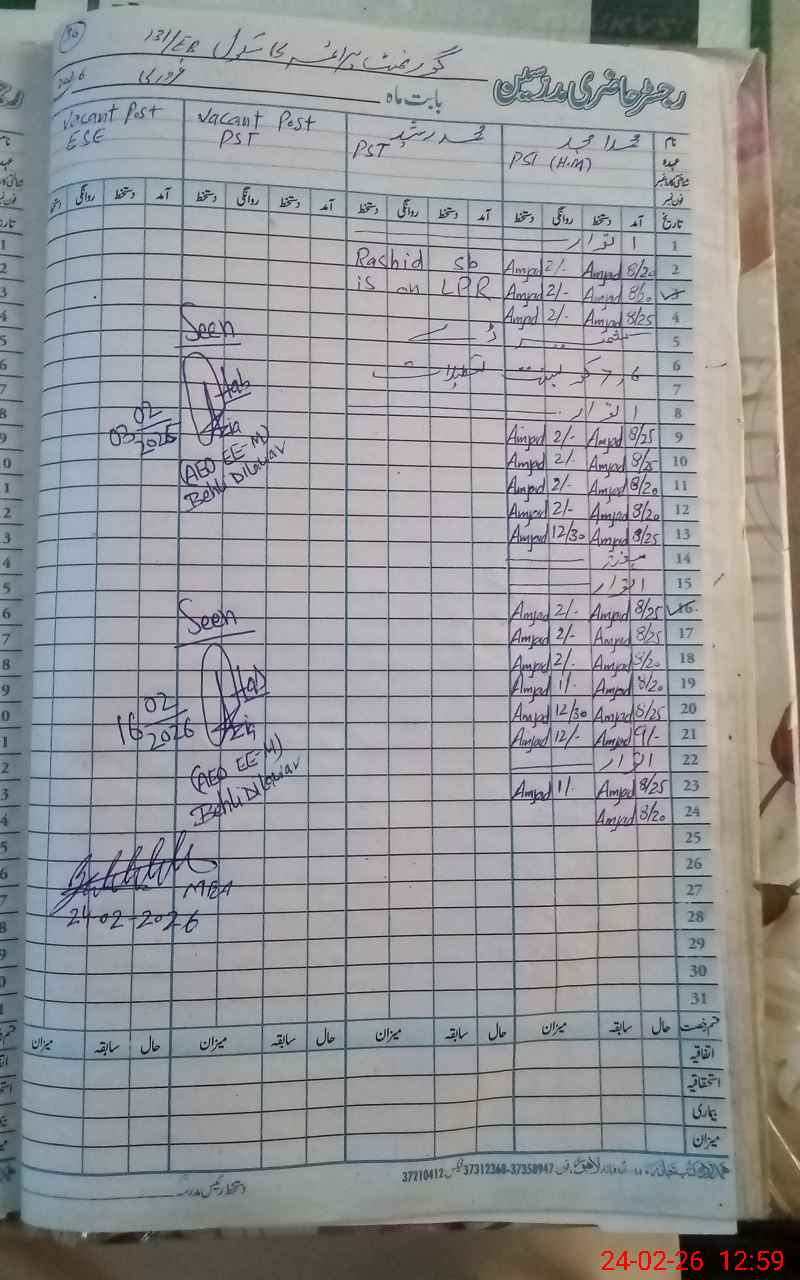 30
گورنمنٹ پرائمری سکول 131/EB
رجسٹر حاضری مدرسین
بابت ماہ فروری 2026
نام محمد امجد محمد رشید Vacant Post Vacant Post
عہدہ PST (H.M) PST PST ESE
شناختی کارڈ نمبر
فون نمبر
تاریخ آمد دستخط روانگی دستخط آمد دستخط روانگی دستخط آمد دستخط روانگی دستخط آمد دستخط روانگی
1 اتوار
2 8/20 Amjad 2/- Amjad Rashid sb
3 8/20 Amjad 2/- Amjad is on LPR
4 8/25 Amjad 2/- Amjad
5 کشمیر ڈے
6
7
8 اتوار
9 8/25 Amjad 2/- Amjad
10 8/25 Amjad 2/- Amjad
11 8/20 Amjad 2/- Amjad
12 8/20 Amjad 2/- Amjad
13 8/25 Amjad 12/30 Amjad
14
15 اتوار
16 8/25 Amjad 2/- Amjad
17 8/25 Amjad 2/- Amjad
18 8/20 Amjad 2/- Amjad
19 8/20 Amjad 1/- Amjad
20 8/25 Amjad 12/30 Amjad
21 9/- Amjad 12/- Amjad
22 اتوار
23 8/25 Amjad 1/- Amjad
24 8/20 Amjad
25
26
27
28
29
30
31
Seen
03 02/2026
(AEO EE-M)
Behli Dilawar
Seen
16 02/2026
(AEO EE-M)
Behli Dilawar
MEA
24-02-2026
قسم رخصت حال سابقہ میزان حال سابقہ میزان حال سابقہ میزان حال سابقہ میزان
اتفاقیہ
استحقاقیہ
بیماری
میزان
37358947-37312368 37210412
دستخط رئیس مدرسہ
24-02-26 12:59